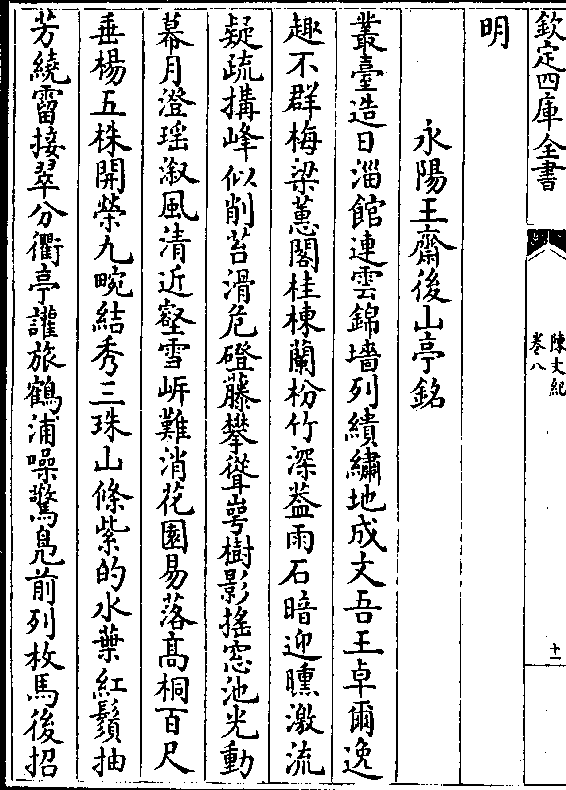 欽定四庫全書
陳文紀
卷八
十一
明
永陽王齋後山亭銘
叢臺造日淄館連雲錦墻列繢繡地成文吾王卓爾逸
趣不群梅梁蕙閣桂棟蘭枌竹深葢雨石暗迎曛激流
疑疏搆峰似削苔滑危磴藤攀聳崿樹影搖窓池光動
幕月澄瑶漵風清近壑雪岓難消花園易落高桐百尺
垂楊五株開榮九畹結秀三珠山條紫的水葉紅鬚抽
芳繞霤接翠分衢亭讙旅鶴浦噪驚鳧前列枚馬後招